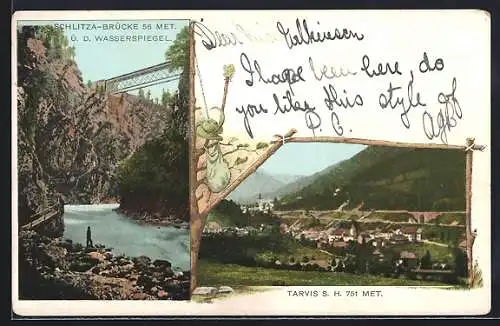 SCHLITZA-BRÜCKE 56 MET.
Ü. D. WASSERSPIEGEL.
Dear
I hope been here, do
you like this style of
P. C.
TARVIS S. H. 751 MET.